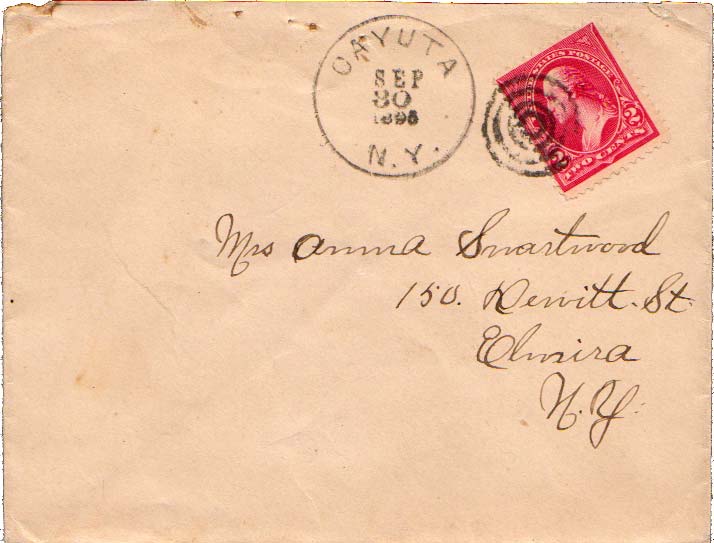 CAYUTA
SEP
30
1895
N.Y.
UNITED STATES POSTAGE
2 2
TWO CENTS
Mrs Anna Swartwood
150. Dewitt. St.
Elmira
N.Y.